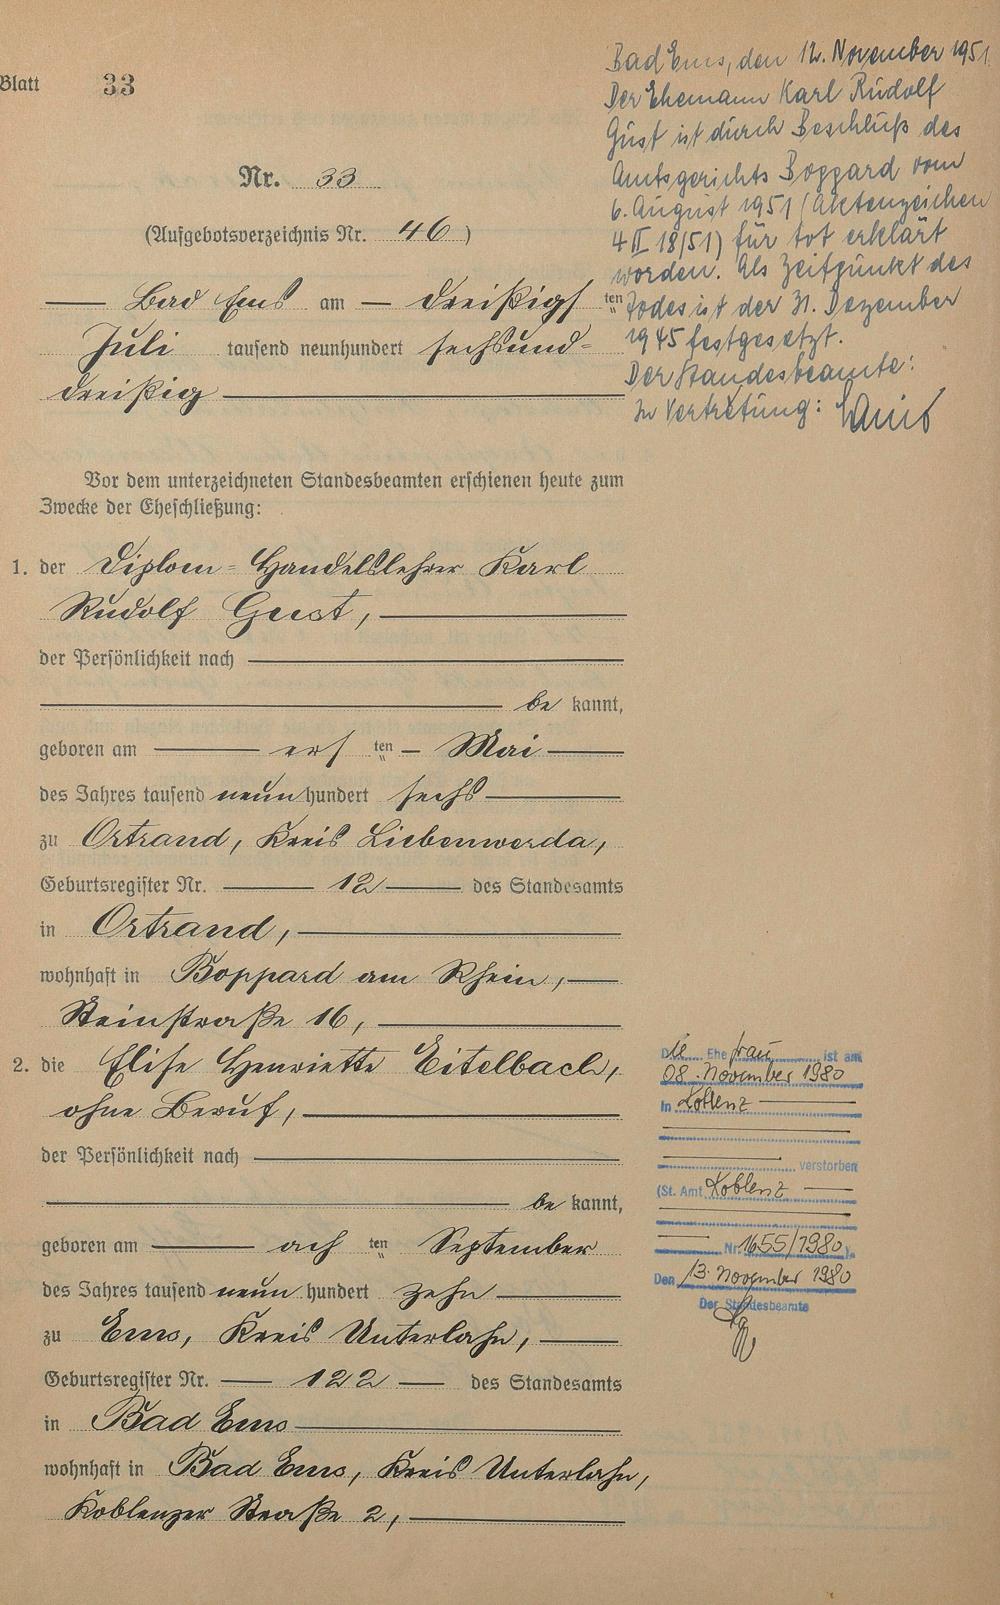 Blatt 33
Nr. 33
(Aufgebotsverzeichnis Nr. 46)
Bad Ems am dreißigsten
Juli tausend neunhundert sechsund-
dreißig
Vor dem unterzeichneten Standesbeamten erschienen heute zum
Zwecke der Eheschließung:
1. der Diplom-Handelslehrer Karl
Rudolf Gust,
der Persönlichkeit nach
be kannt,
geboren am ersten Mai
des Jahres tausend neunhundert sechs
zu Ortrand, Kreis Liebenwerda,
Geburtsregister Nr. 12 des Standesamts
in Ortrand,
wohnhaft in Boppard am Rhein,
Steinstraße 16,
2. die Elise Henriette Eitelbach,
ohne Beruf,
der Persönlichkeit nach
be kannt,
geboren am achten September
des Jahres tausend neunhundert zehn
zu Ems, Kreis Unterlahn,
Geburtsregister Nr. 122 des Standesamts
in Bad Ems
wohnhaft in Bad Ems, Kreis Unterlahn,
Koblenzer Straße 2,
Bad Ems, den 12. November 1951
Der Ehemann Karl Rudolf
Gust ist durch Beschluß des
Amtsgerichts Boppard vom
6. August 1951 (Aktenzeichen
4 II 18/51) für tot erklärt
worden. Als Zeitpunkt des
Todes ist der 31. Dezember
1945 festgesetzt.
Der Standesbeamte:
In Vertretung:
Die Ehefrau ist am
08. November 1980
in Koblenz
verstorben
(St. Amt Koblenz
Nr. 1655/1980).
Den 13. November 1980
Der Standesbeamte